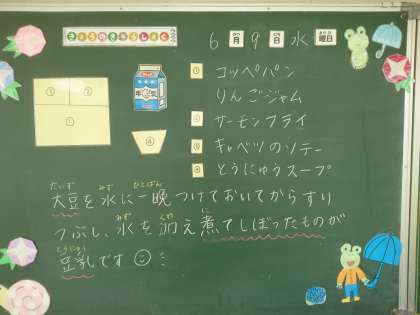 きょうのきゅうしょく
6月9日水曜日
牛乳
① コッペパン
りんごジャム
サーモンフライ
③ キャベツのソテー
④ とうにゅうスープ
③
②
①
④
だいず みず ひとばん
大豆を水に一晩つけておいてからすり
みず くわ に
つぶし、水を加え煮てしぼったものが
とうにゅう
豆乳です